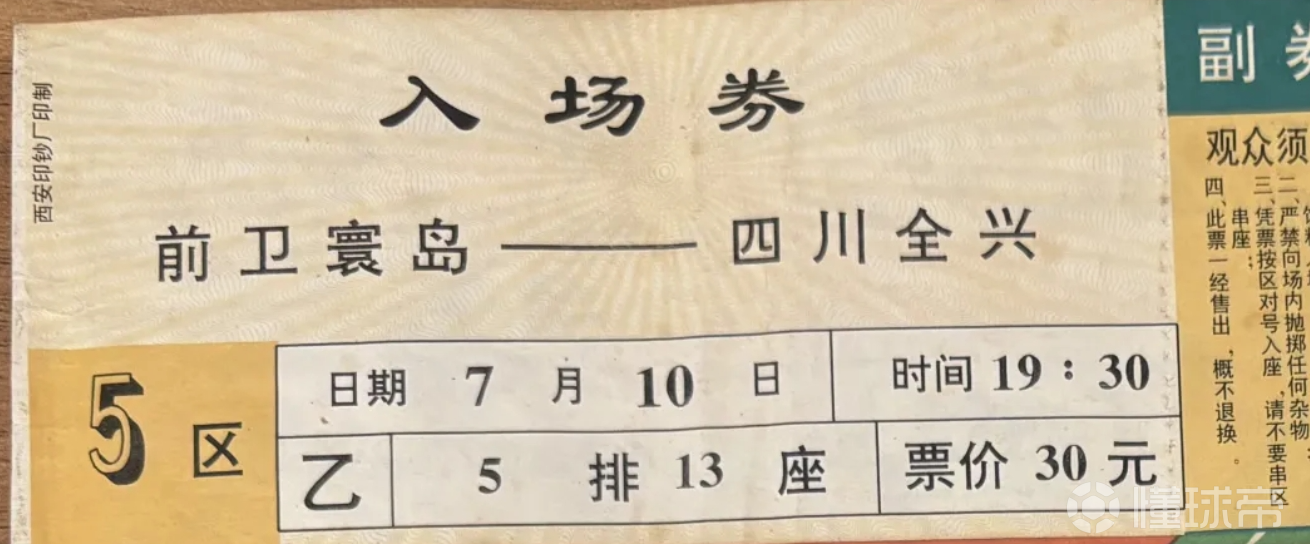 西安印钞厂印制
入场券
前卫寰岛——四川全兴
5区
日期 7 月 10 日
时间 19:30
乙
5 排 13 座
票价 30 元
副
观众须
二、严禁向场内抛掷任何杂物
三、凭票按区对号入座,请不要串区
串座;
四、此票一经售出,概不退换。
懂球帝